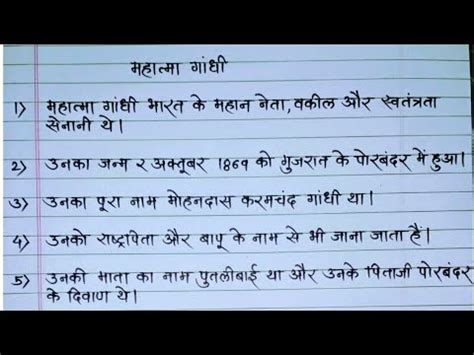 महात्मा गांधी
1) महात्मा गांधी भारत के महान नेता, वकील और स्वतंत्रता
सेनानी थे।
2) उनका जन्म २ अक्तूबर 1869 को गुजरात के पोरबंदर में हुआ।
3) उनका पूरा नाम मोहनदास करमचंद गांधी था।
4) उनको राष्ट्रपिता और बापू के नाम से भी जाना जाता हैं।
5) उनकी माता का नाम पुतलीबाई था और उनके पिताजी पोरबंदर
के दिवाण थे।